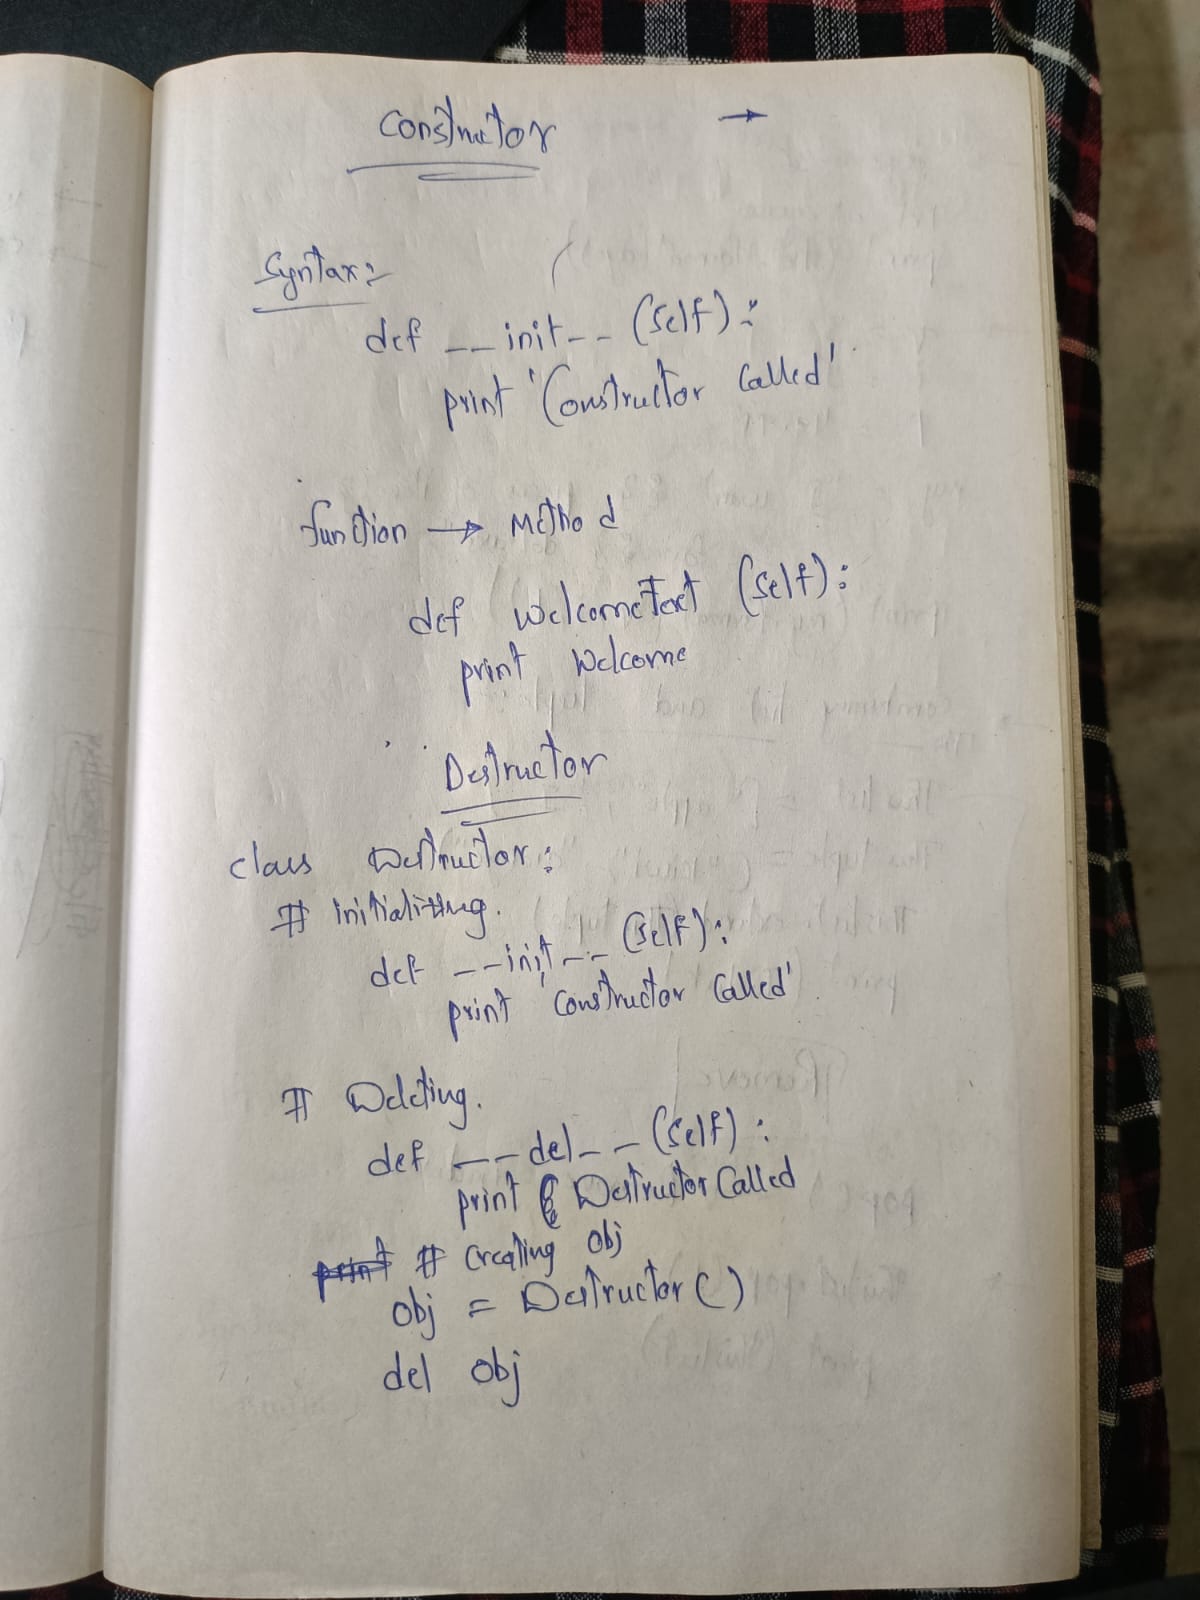 Constructor →
Syntax:
def __init__ (self):
print 'Constructor Called'
function → Method
def WelcomeText (self):
print Welcome
Destructor
class Destructor:
# initialitting.
def __init__ (self):
print 'Constructor Called'
# Deleting.
def __del__ (self):
print Destructor Called
print # Creating obj
obj = Destructor ( )
del obj